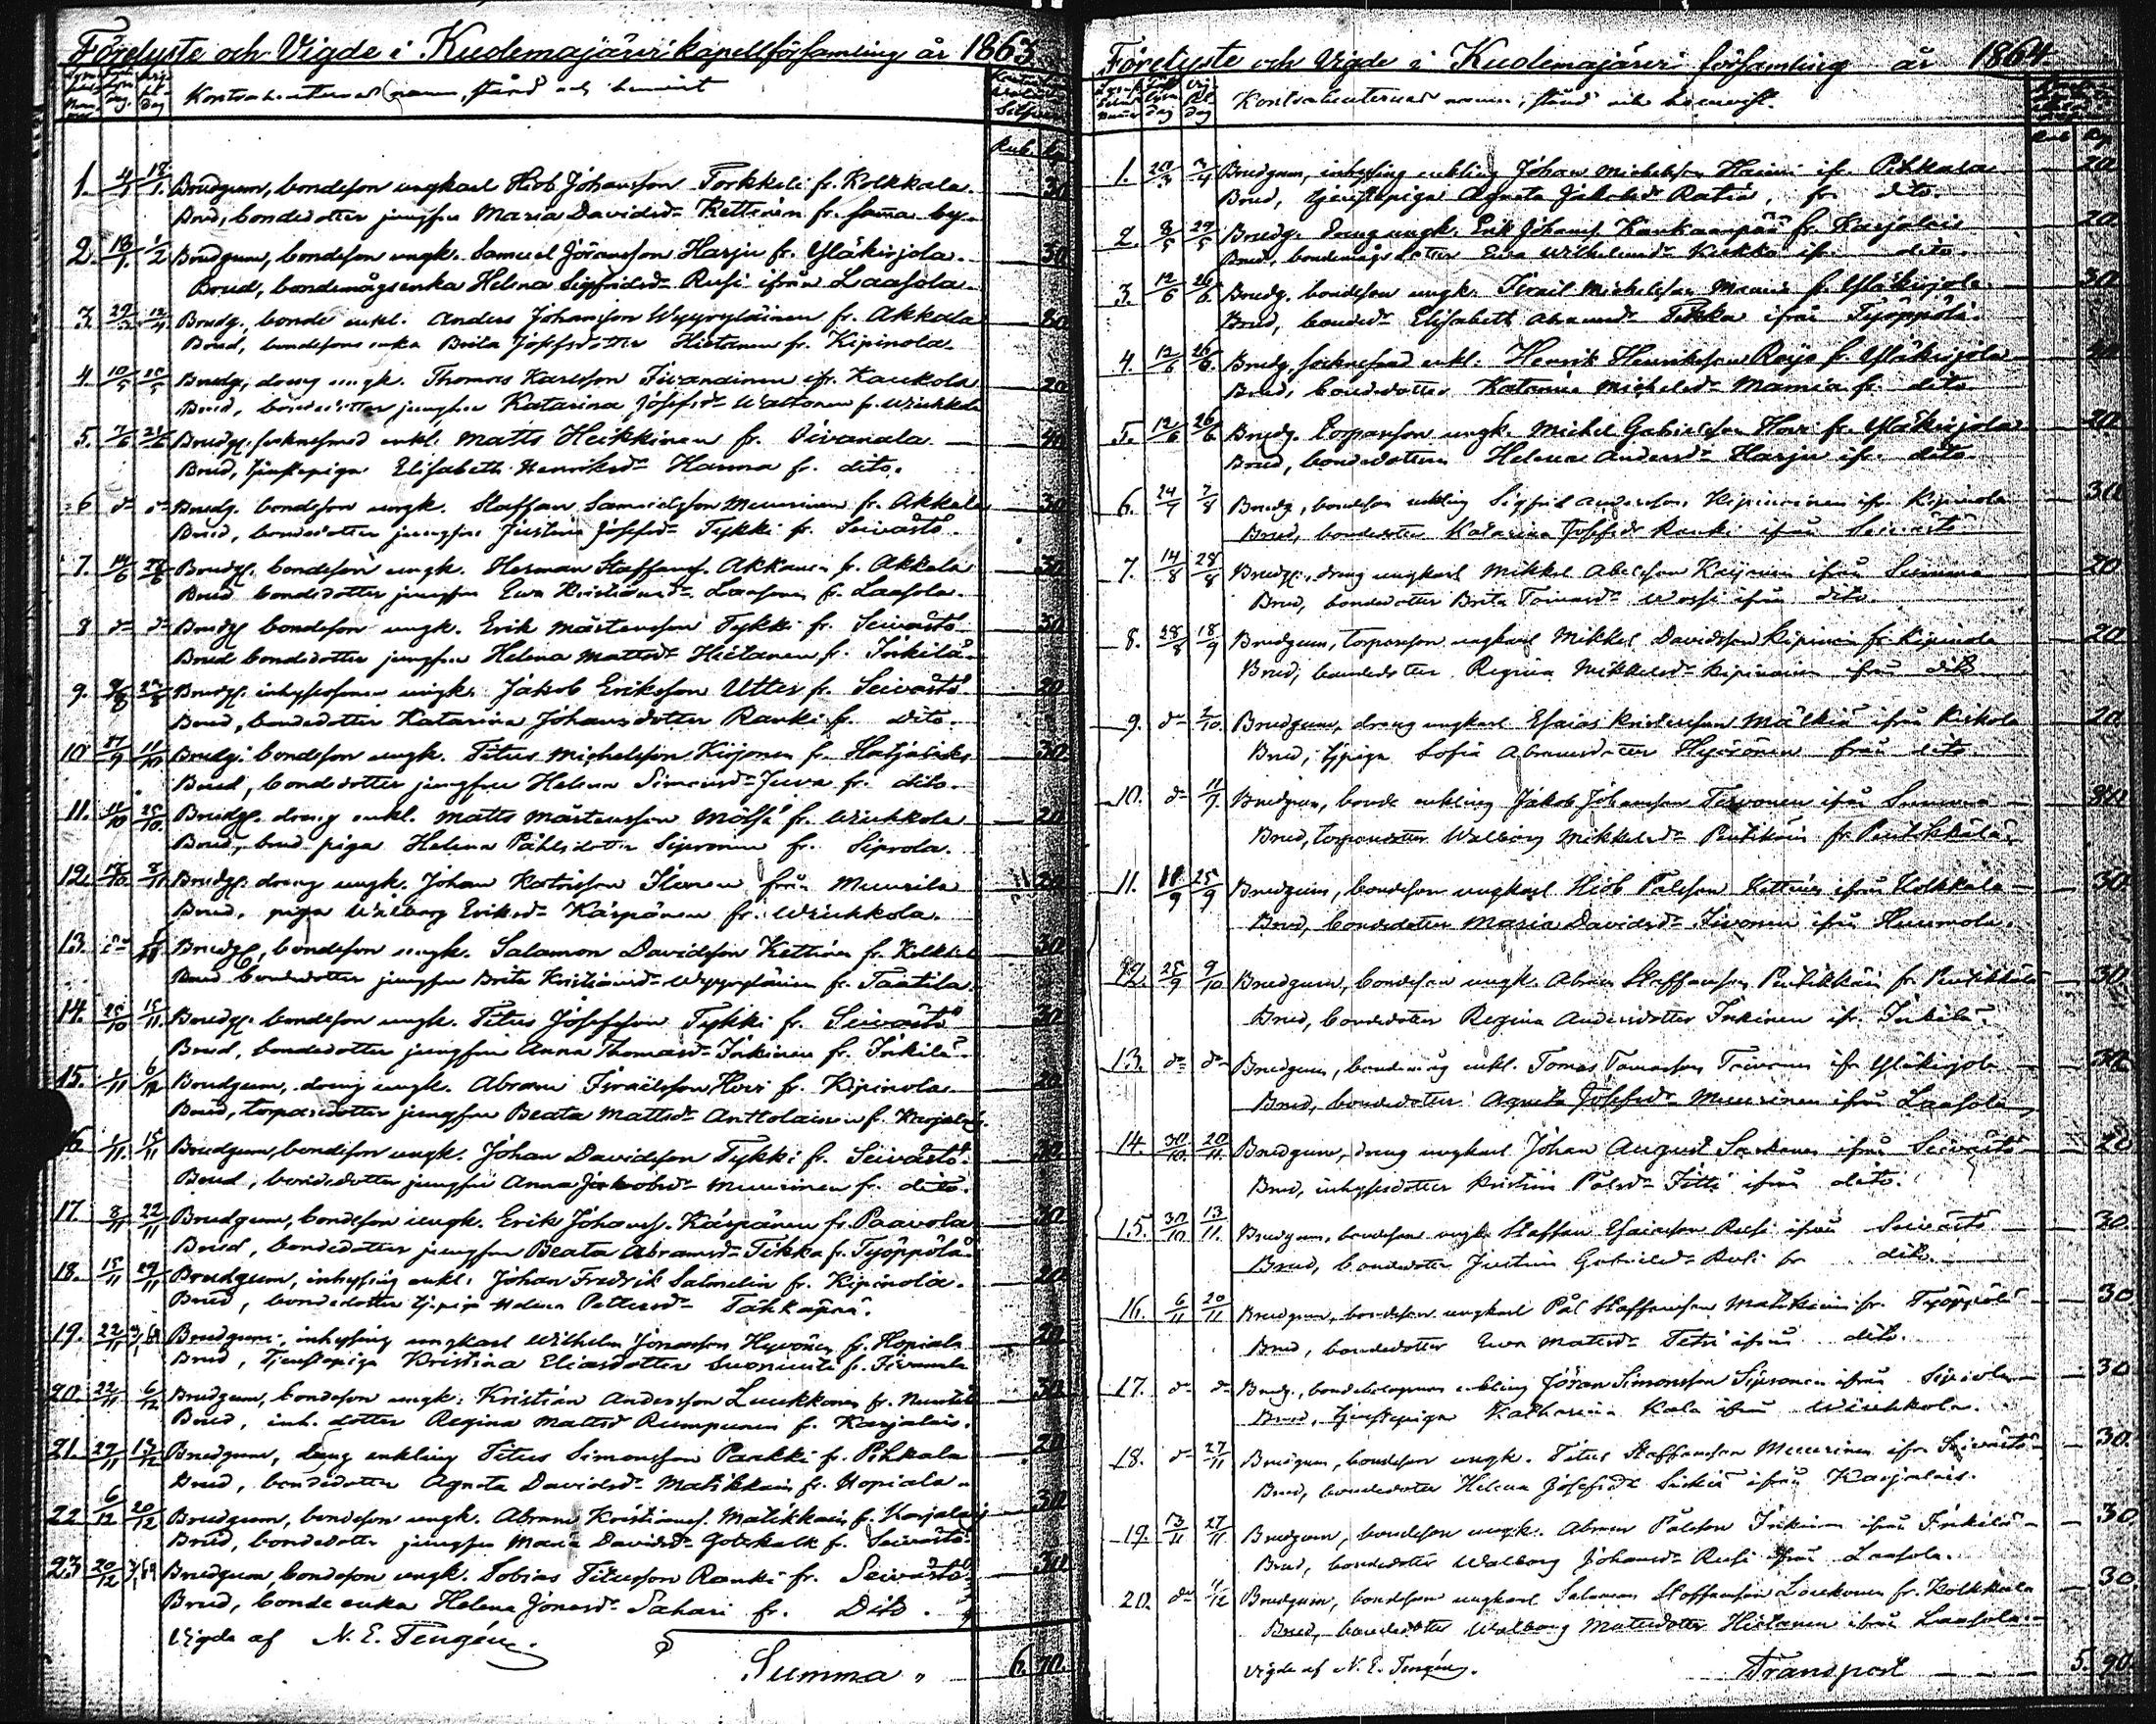 Förelyste och Vigde i Kuolemajärvi kapellförsamling år 1863.
Kontrahenternas namn, stånd och hemvist
Rub. kop
1. 4/1 18/1. Brudgum, bondeson ungkarl Hiob Johansson Torkkeli fr. Kolkkala. 30
Brud, bondedotter jungfru Maria Davidsdr Kettunen fr. samma by.
2. 18/1. 1/2 Brudgum, bondeson ungk. Samuel Jöransson Harju fr. Yläkirjola. 30
Brud, bondemågsenka Helena Sigfridsdr Rusi ifrån Laasola.
3. Brudg. bonde enkl. Anders Johansson Wyyryläinen fr. Akkala 80
Brud, bondesons enka Brita Josefsdotter Hietanen fr. Kipinola.
4. 10/5 25/5 Brudg. dräng ungk. Thomas Karlsson ifr. Kaukola 20
Brud, bondedotter jungfru Katarina Josefsdr Wattanen fr. Wiukkola
5. 7/6 21/6 Brudg. socknesmed enkl. Matts Heikkinen fr. 40
Brud, tjenstepiga Elisabeth Henriksdr Hanna fr. dito.
6 do do Brudg. bondeson ungk. Staffan Samuelsson Muurinen fr. Akkala 30
Brud, bondedotter jungfru Justina Josefsdr Tykki fr. Seivästö.
7. 14/6 28/6 Brudg. bondeson ungk. Herman Staffanss. Akkanen fr. Akkala 30
Brud bondedotter jungfru Ewa Kristiansdr Laasonen fr. Laasola.
8 do do Brudg. bondeson ungk. Erik Mårtensson Tykki fr. Seivästö 30
Brud bondedotter jungfru Helena Mattsdr Hietanen fr. Inkilä.
9. Brudg. inhysesson ungk. Jakob Eriksson Utter fr. Seivästö. 20
Brud, bondedotter Katarina Johansdotter Ranki fr. dito.
10 27/9 11/10 Brudg. bondeson ungk. Titus Michelsson Kirjonen fr. Hatjalaks 30.
Brud, bondedotter jungfru Helena Simonsdr Juva fr. dito.
11. 11/10 25/10. Brudg. dräng enkl. Matts Mårtensson Mölsä fr. Wiukkola 20
Brud, bond. piga Helena Påhlsdotter Sipronen fr. Siprola.
12. 18/10 8/11 Brudg. dräng ungk. Johan fr. Muurila 20
Brud, piga Walborg Eriksdr Käspänen fr. Wiukkola.
13. do Brudg., bondeson ungk. Salamon Davidsson Kettunen fr. Kolkkala 30
Brud bondedotter jungfru Brita Kristiansdr Wyyryläinen fr. Taatila
14. 25/10 15/11. Brudg. bondeson ungk. Titus Josefsson Tykki fr. Seivästö 30
Brud, bondedotter jungfru Anna Thomasdr Inkinen fr. Inkilä.
15. 1/11 6/12 Brudgum, dräng ungk. Abram Israelsson Hovi fr. Kipinola 20
Brud, torparedotter jungfru Beata Mattsdr Anttolainen fr. Karjalais.
16. 1/11. 15/11 Brudgum, bondeson ungk. Johan Davidsson Tykki fr. Seivästö. 30
Brud, bondedotter jungfru Anna Jakobsdr Muurinen fr. dito.
17. 8/11 22/11 Brudgum, bondeson ungk. Erik Johanss. Käspänen fr. Paavola 30
Brud, bondedotter jungfru Beata Abramsdr Tikka fr. Työppölä.
18. 15/11 29/11 Brudgum, inhysing enkl. Johan Fredrik Salmelin fr. Kipinola. 20
Brud, bondedotter tj. piga Helena Pettersdr Tähkäpää.
19. 22/11 Brudgum, inhysing ungkarl Wilhelm Jonasson Hyvönen fr. Hopiala 20
Brud, Tjenstepiga Kristina Eliasdotter fr.
20. 22/11 6/12 Brudgum, bondeson ungk. Kristian Andersson Luukkonen fr. 30
Brud, inh. dotter Regina Mattsdr Rumpunen fr. Karjalais.
21. 29/11 13/12 Brudgum, dräng enkling Titus Simonsson Parkki fr. Pihkala 20
Brud, bondedotter Agneta Davidsdr Matikkain fr. Hopiala.
22 6/12 20/12 Brudgum, bondeson ungk. Abram Kristianss. Matikkain fr. Karjalais 30
Brud, bondedotter jungfru Maria Davidsdr Gotskalk fr. Seivästö.
23 20/12 Brudgum, bondeson ungk. Tobias Titusson Ranki fr. Seivästö. 30
Brud, bonde enka Helena Jonasdr Sahari fr. Dito.
Vigde af N. E. Tengén.
Summa " 6. 70.
Förelyste och Vigde i Kuolemajärvi församling år 1864.
Kontrahenternas namn, stånd och hemvist.
1. 20/3 3/4 Brudgum, inhysing enkling Johan Michelsson Haini ifr. Pihkala 20
Brud, tjenstepiga Agneta Jakobsdr Ratia, fr. dito.
2. 8/5 29/5 Brudg. dräng ungk. Erik Johanss. Kankaanpää fr. Karjalais 20
Brud, bondemågsdotter Ewa Wilhelmsdr Kukko ifr. dito.
3. 12/6 26/6. Brudg. bondeson ungk. Israel Michelsson Mannia fr. Yläkirjola 30
Brud, bondedr Elisabeth Abramsdr Tikka ifrån Työppölä.
4. 12/6 26/6. Brudg. socknesmed enkl. Henrik Henriksson fr. Yläkirjola 40
Brud, bondedotter Katarina Michelsdr Mannia fr. dito
5. 12/6 26/6 Brudg. Torpareson ungk. Michel Gabrielsson Hovi fr. Yläkirjola 20
Brud, bondedotter Helena Andersdr Harju ifr. dito
6. 24/7 7/8 Brudg, bondeson enkling Sigfrid Andersson Kipinoinen ifr. Kipinola 30
Brud, bondedotter Katarina Josefsdr Ranki ifrån Seivästö
7. 14/8 28/8 Brudg., dräng ungkarl Mikkel Abelsson ifrån Summa 20
Brud, bondedotter Brita ifrån dito.
8. 28/8 18/9 Brudgum, torpareson ungkarl Mikkel Davidsson Kipinoinen fr. Kipinola 20
Brud, bondedotter Regina Mikkelsdr Kipinoinen ifrån dito
9. do 2/10. Brudgum, dräng ungkarl Esaias Kristersson Mälkiä ifrån Kiskola 20
Brud, tjpiga Sofia Abramsdotter Hyvönen från dito
10. do Brudgum, bonde enkling Jakob Johansson Tervonen ifrån Summa 80
Brud, torparedotter Walborg Mikkelsdr Pentikäin fr. Pentikkälä.
11. 11/9 25/9 Brudgum, bondeson ungkarl Hiob Pålsson Kettunen ifrån Kolkkala 30.
Brud, bondedotter Maria Davidsdr ifrån Huumola.
12. 25/9 9/10 Brudgum, bondeson ungk. Abram Staffansson Pentikkäin fr. Pentikkälä 30
Brud, bondedotter Regina Andersdotter Inkinen ifr. Inkilä.
13. do do Brudgum, bondemåg enkl. Tomas Tomasson Toivonen ifr. Yläkirjola 30
Brud, bondedotter Agneta Josefsdr Muurinen ifrån Laasola
14. 30/10 20/11. Brudgum, dräng ungkarl Johan August ifrån Seivästö 20
Brud, inhysesdotter Kristina Pålsdr ifrån dito.
15. 30/10 13/11. Brudgum, bondeson ungk. Staffan Esaiasson Rusi ifrån Seivästö 30
Brud, bondedotter Justina Gabrielsdr Rusi fr dito.
16. 6/11 20/11 Brudgum, bondeson ungkarl Pål Staffansson Matikkain fr. Työppölä 30
Brud, bondedotter Ewa Matsdr ifrån dito.
17. do do Brudg., bondebolagsman enkling Jöran Simonsson Sipronen ifrån Siprola 30
Brud, tjenstepiga Katharina Kala ifrån Wiukkola.
18. do 27/11 Brudgum, bondeson ungk. Titus Staffansson Muurinen ifrån Seivästö 30
Brud, bondedotter Helena Josefsdr ifrån Karjalais.
19. 13/11 27/11 Brudgum, bondeson ungk. Abram Pålsson Inkinen ifrån Inkilä 30.
Brud, bondedotter Walborg Johansdr Rusi ifrån Laasola.
20. do Brudgum, bondeson ungkarl Salamon Staffansson fr. Kolkkala 30
Brud, bondedotter Walborg Matsdotter Hietanen ifrån Laasola.
Vigde af N. E. Tengén.
Transport 5. 90.